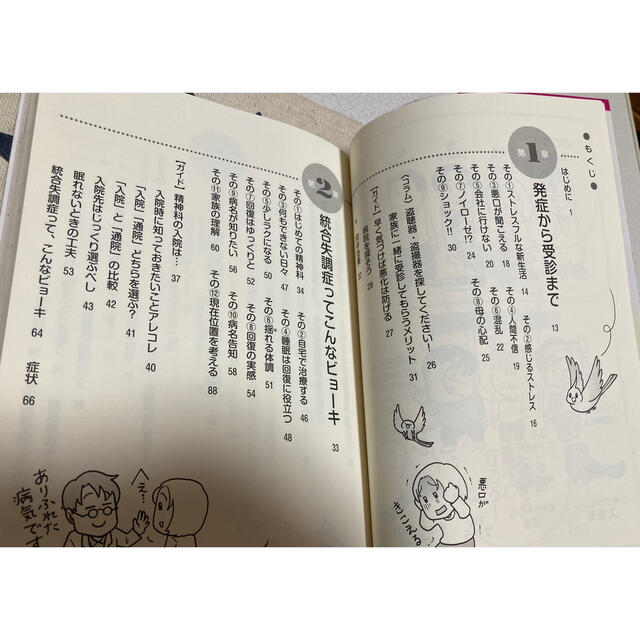 ●もくじ●
はじめに 1
第1章 発症から受診まで 13
その①ストレスフルな新生活 14 その②感じるストレス 16
その③悪口が聞こえる 18 その④人間不信 19
その⑤会社に行けない 20 その⑥混乱 22
その⑦ノイローゼ? 24 その⑧母の心配 25
その⑨ショック!! 30
〈コラム〉盗聴器・盗撮器を探してください! 26
家族に一緒に受診してもらうメリット 31
〔ガイド〕早く気づけば悪化は防げる 27
病院を探そう 28
第2章 統合失調症ってこんなビョーキ 33
その①はじめての精神科 34 その②自宅で治療する 46
その③何もできない日々 47 その④睡眠は回復に役立つ 48
その⑤少しラクになる 50 その⑥揺れる体調 51
その⑦回復はゆっくりと 52 その⑧回復の実感 54
その⑨病名が知りたい 56 その⑩病名告知 58
その⑪家族の理解 60 その⑫現在位置を考える 88
〔ガイド〕精神科の入院は… 37
入院時に知っておきたいことアレコレ 40
「入院」「通院」どちらを選ぶ? 41
「入院」と「通院」の比較 42
入院先はじっくり選ぶべし 43
眠れないときの工夫 53
統合失調症って、こんなビョーキ 64 症状 66
悪口が
きこえる
へぇ…
ありふれた
病気です